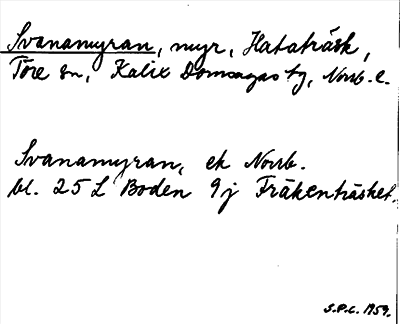 Svanamyran, myr, Hataträsk,
Töre sn, Kalix Domsagas tg, Norrb. l.
Svanamyran, ek Norrb.
bl. 25 L Boden 9j Fräkenträsket.
S.P.C. 1959.